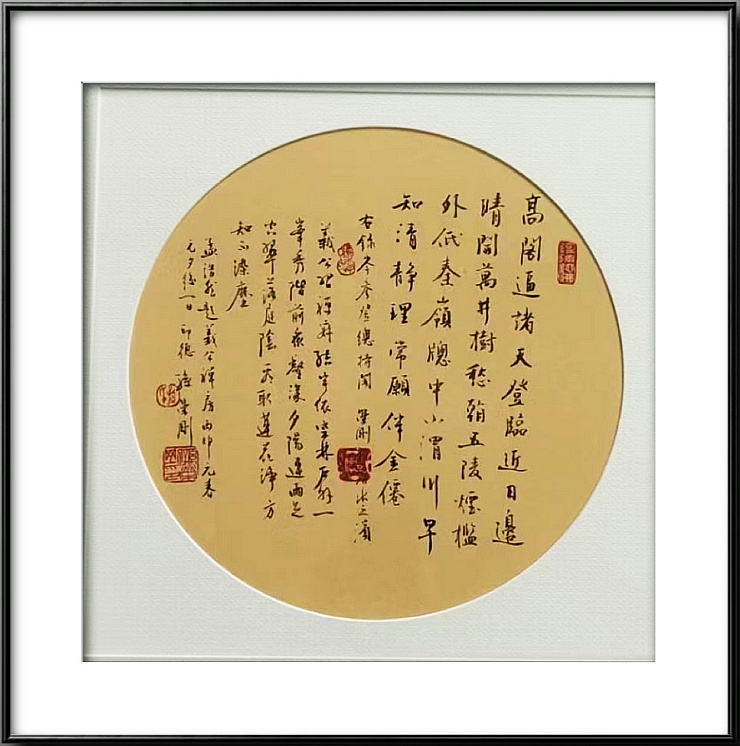 高閣逼諸天登臨近日邊
晴開萬井樹愁看五陵煙檻
外低秦嶺牕中小渭川早
知清靜理常願伴金僊
右錄岑參登總持閣 榮剛 水之濱
義公習禪寂結宇依空林戶外一
峯秀階前衆壑深夕陽連雨足
空翠落庭陰看取蓮花淨方
知不染塵
孟浩然題義公禪房丙申元春
元夕後一日 榮剛